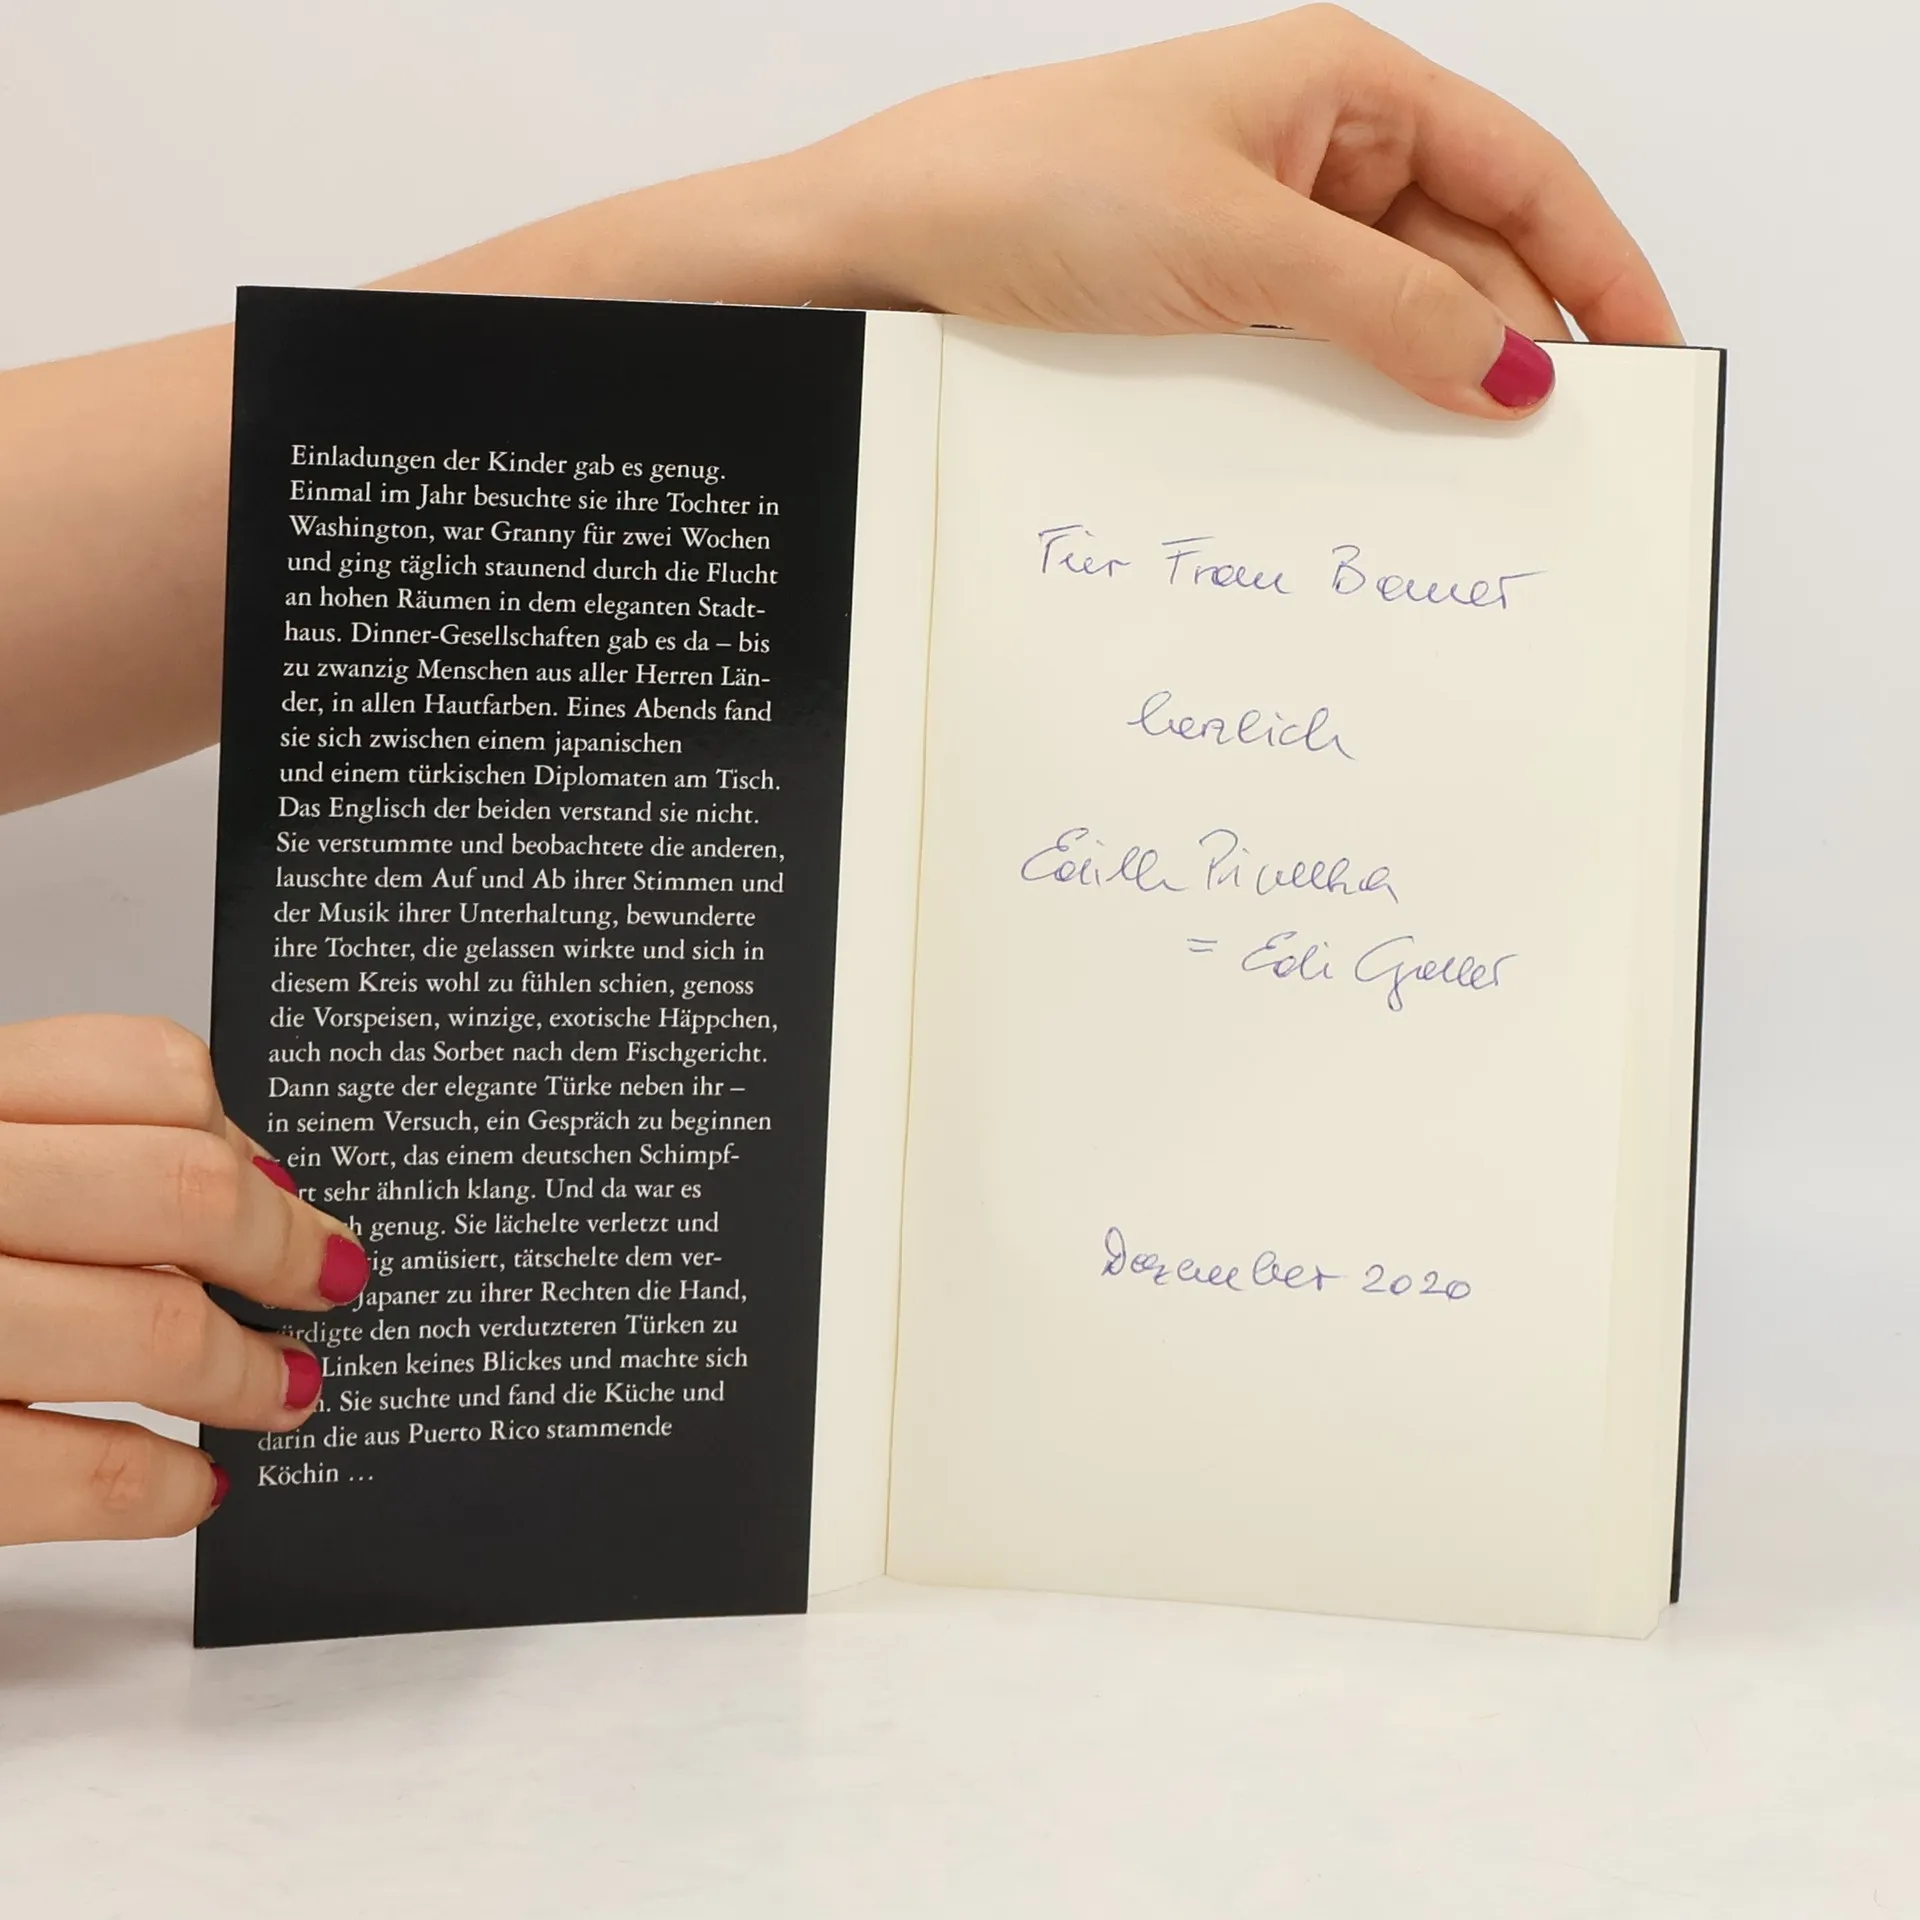 Einladungen der Kinder gab es genug.
Einmal im Jahr besuchte sie ihre Tochter in
Washington, war Granny für zwei Wochen
und ging täglich staunend durch die Flucht
an hohen Räumen in dem eleganten Stadt-
haus. Dinner-Gesellschaften gab es da – bis
zu zwanzig Menschen aus aller Herren Län-
der, in allen Hautfarben. Eines Abends fand
sie sich zwischen einem japanischen
und einem türkischen Diplomaten am Tisch.
Das Englisch der beiden verstand sie nicht.
Sie verstummte und beobachtete die anderen,
lauschte dem Auf und Ab ihrer Stimmen und
der Musik ihrer Unterhaltung, bewunderte
ihre Tochter, die gelassen wirkte und sich in
diesem Kreis wohl zu fühlen schien, genoss
die Vorspeisen, winzige, exotische Häppchen,
auch noch das Sorbet nach dem Fischgericht.
Dann sagte der elegante Türke neben ihr –
in seinem Versuch, ein Gespräch zu beginnen
– ein Wort, das einem deutschen Schimpf-
rt sehr ähnlich klang. Und da war es
h genug. Sie lächelte verletzt und
ig amüsiert, tätschelte dem ver-
Japaner zu ihrer Rechten die Hand,
ürdigte den noch verdutzteren Türken zu
Linken keines Blickes und machte sich
n. Sie suchte und fand die Küche und
darin die aus Puerto Rico stammende
Köchin ...
Für Frau
herzlich
Edith
= Edi
Dezember 2020